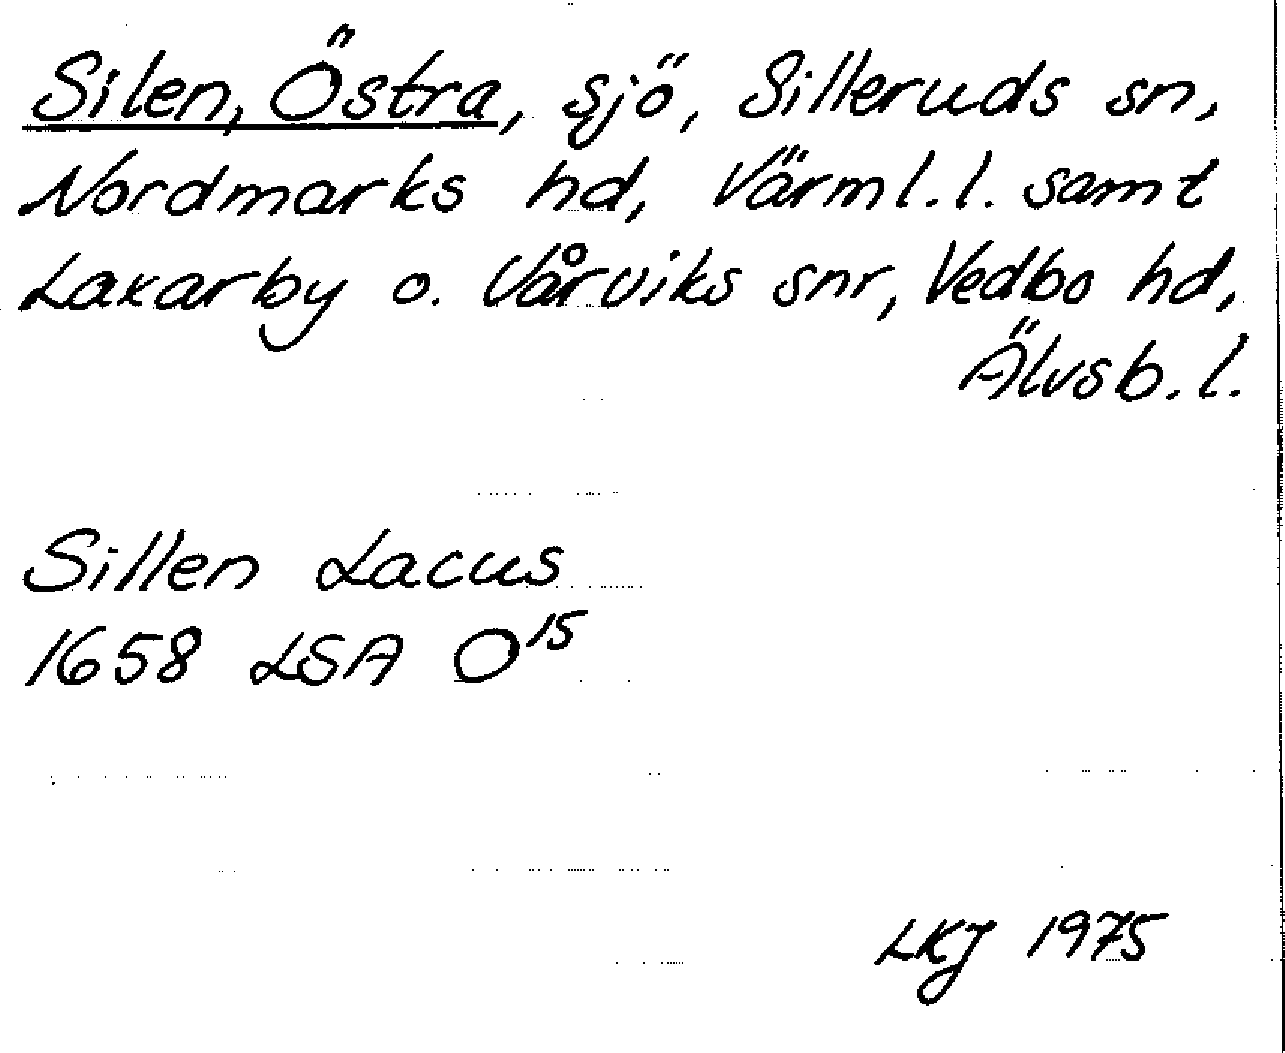 Silen, Östra, sjö, Silleruds sn,
Nordmarks hd, Värml. l. samt
Laxarby o. Vårviks snr, Vedbo hd,
Älvsb. l.
Sillen Lacus
1658 LSA O¹⁵
LKJ 1975